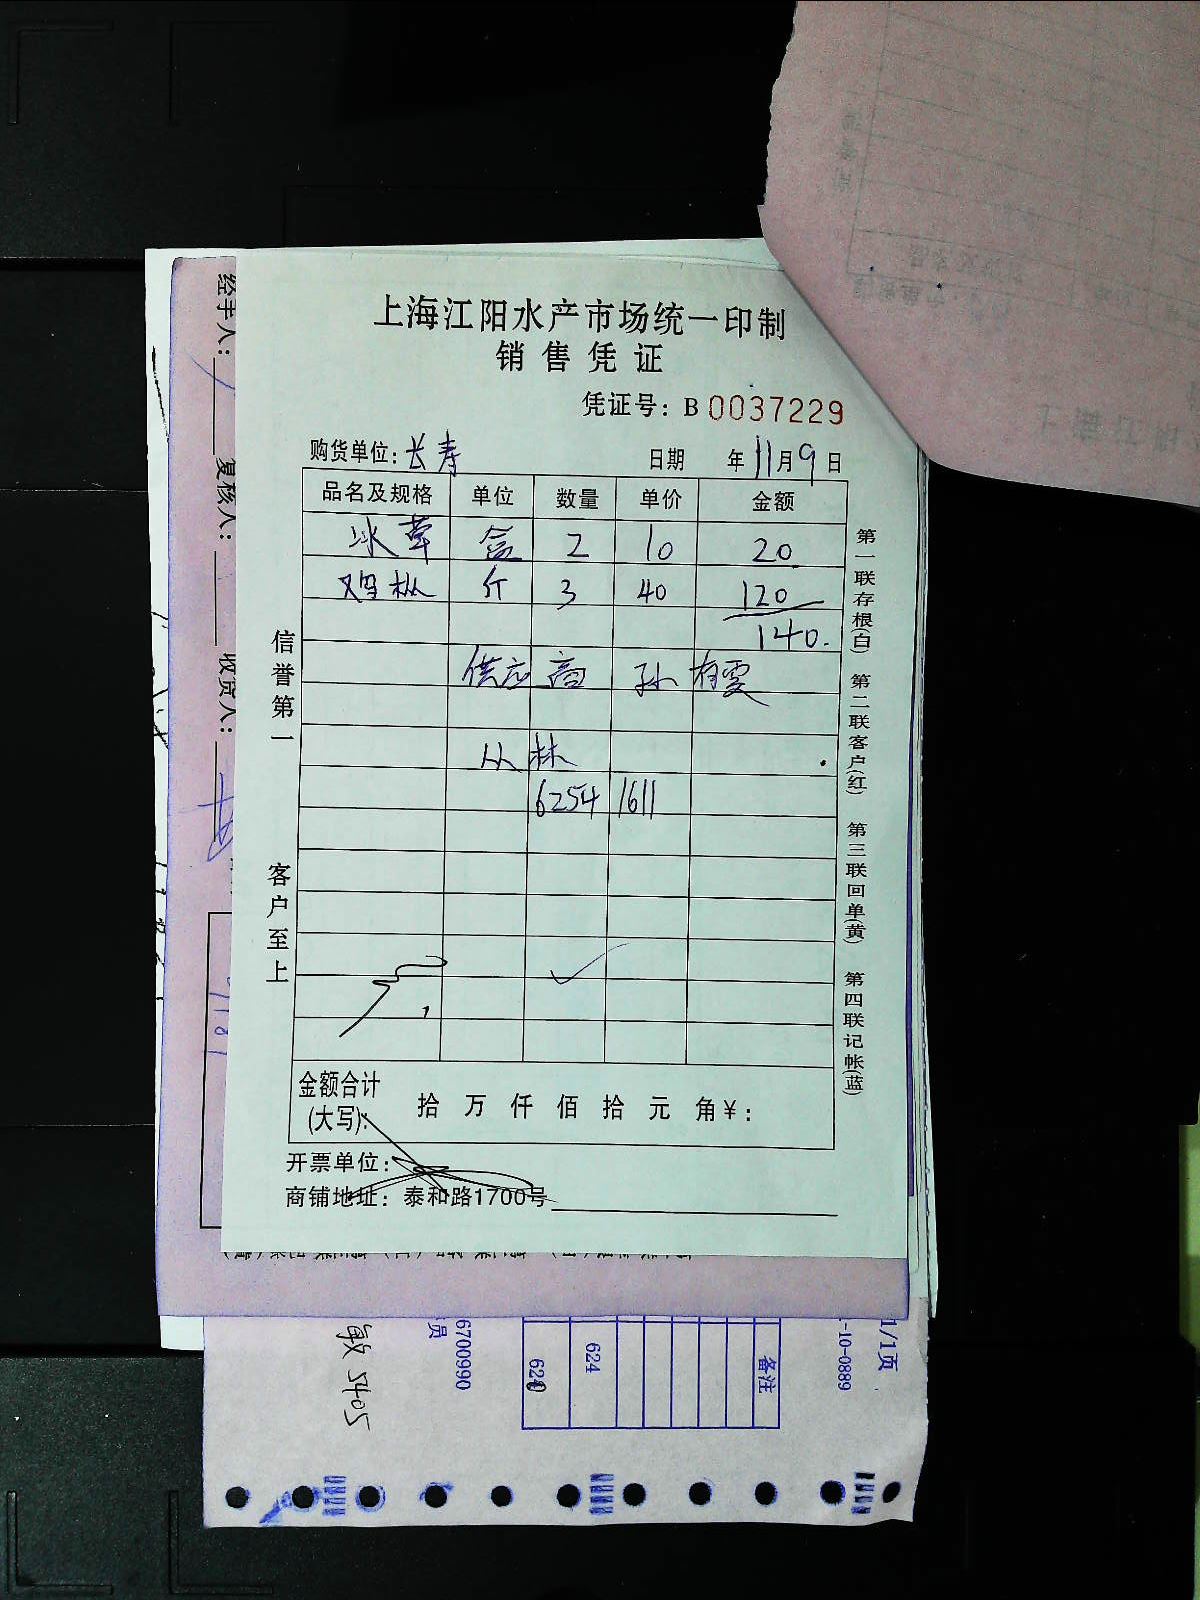 上海江阳水产市场统一印制
销售凭证
凭证号: B 0037229
购货单位: 长寿 日期 年 11月 9日
品名及规格 单位 数量 单价 金额
冰草 盒 2 10 20
鸡枞 斤 3 40 120
140.
供应商 孙有雯
从林
6254 1611
金额合计
(大写): 拾 万 仟 佰 拾 元 角 ¥:
开票单位:
商铺地址: 泰和路1700号
信誉第一
客户至上
第一联存根(白) 第二联客户(红) 第三联回单(黄) 第四联记帐(蓝)
经手人:
复核人:
收货人:
敏 5405
员
6700990
624
624
备注
1/1页
-10-0889